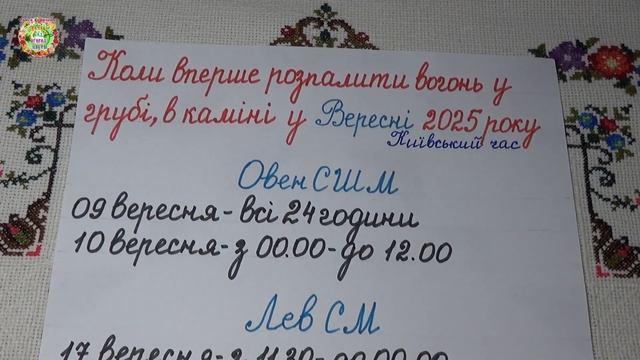 Коли вперше розпалити вогонь у
грубі, в каміні у Вересні 2025 року
Київський час
Овен СШМ
09 вересня - всі 24 години
10 вересня - з 00.00 - до 12.00
Лев СМ
17 вересня - з